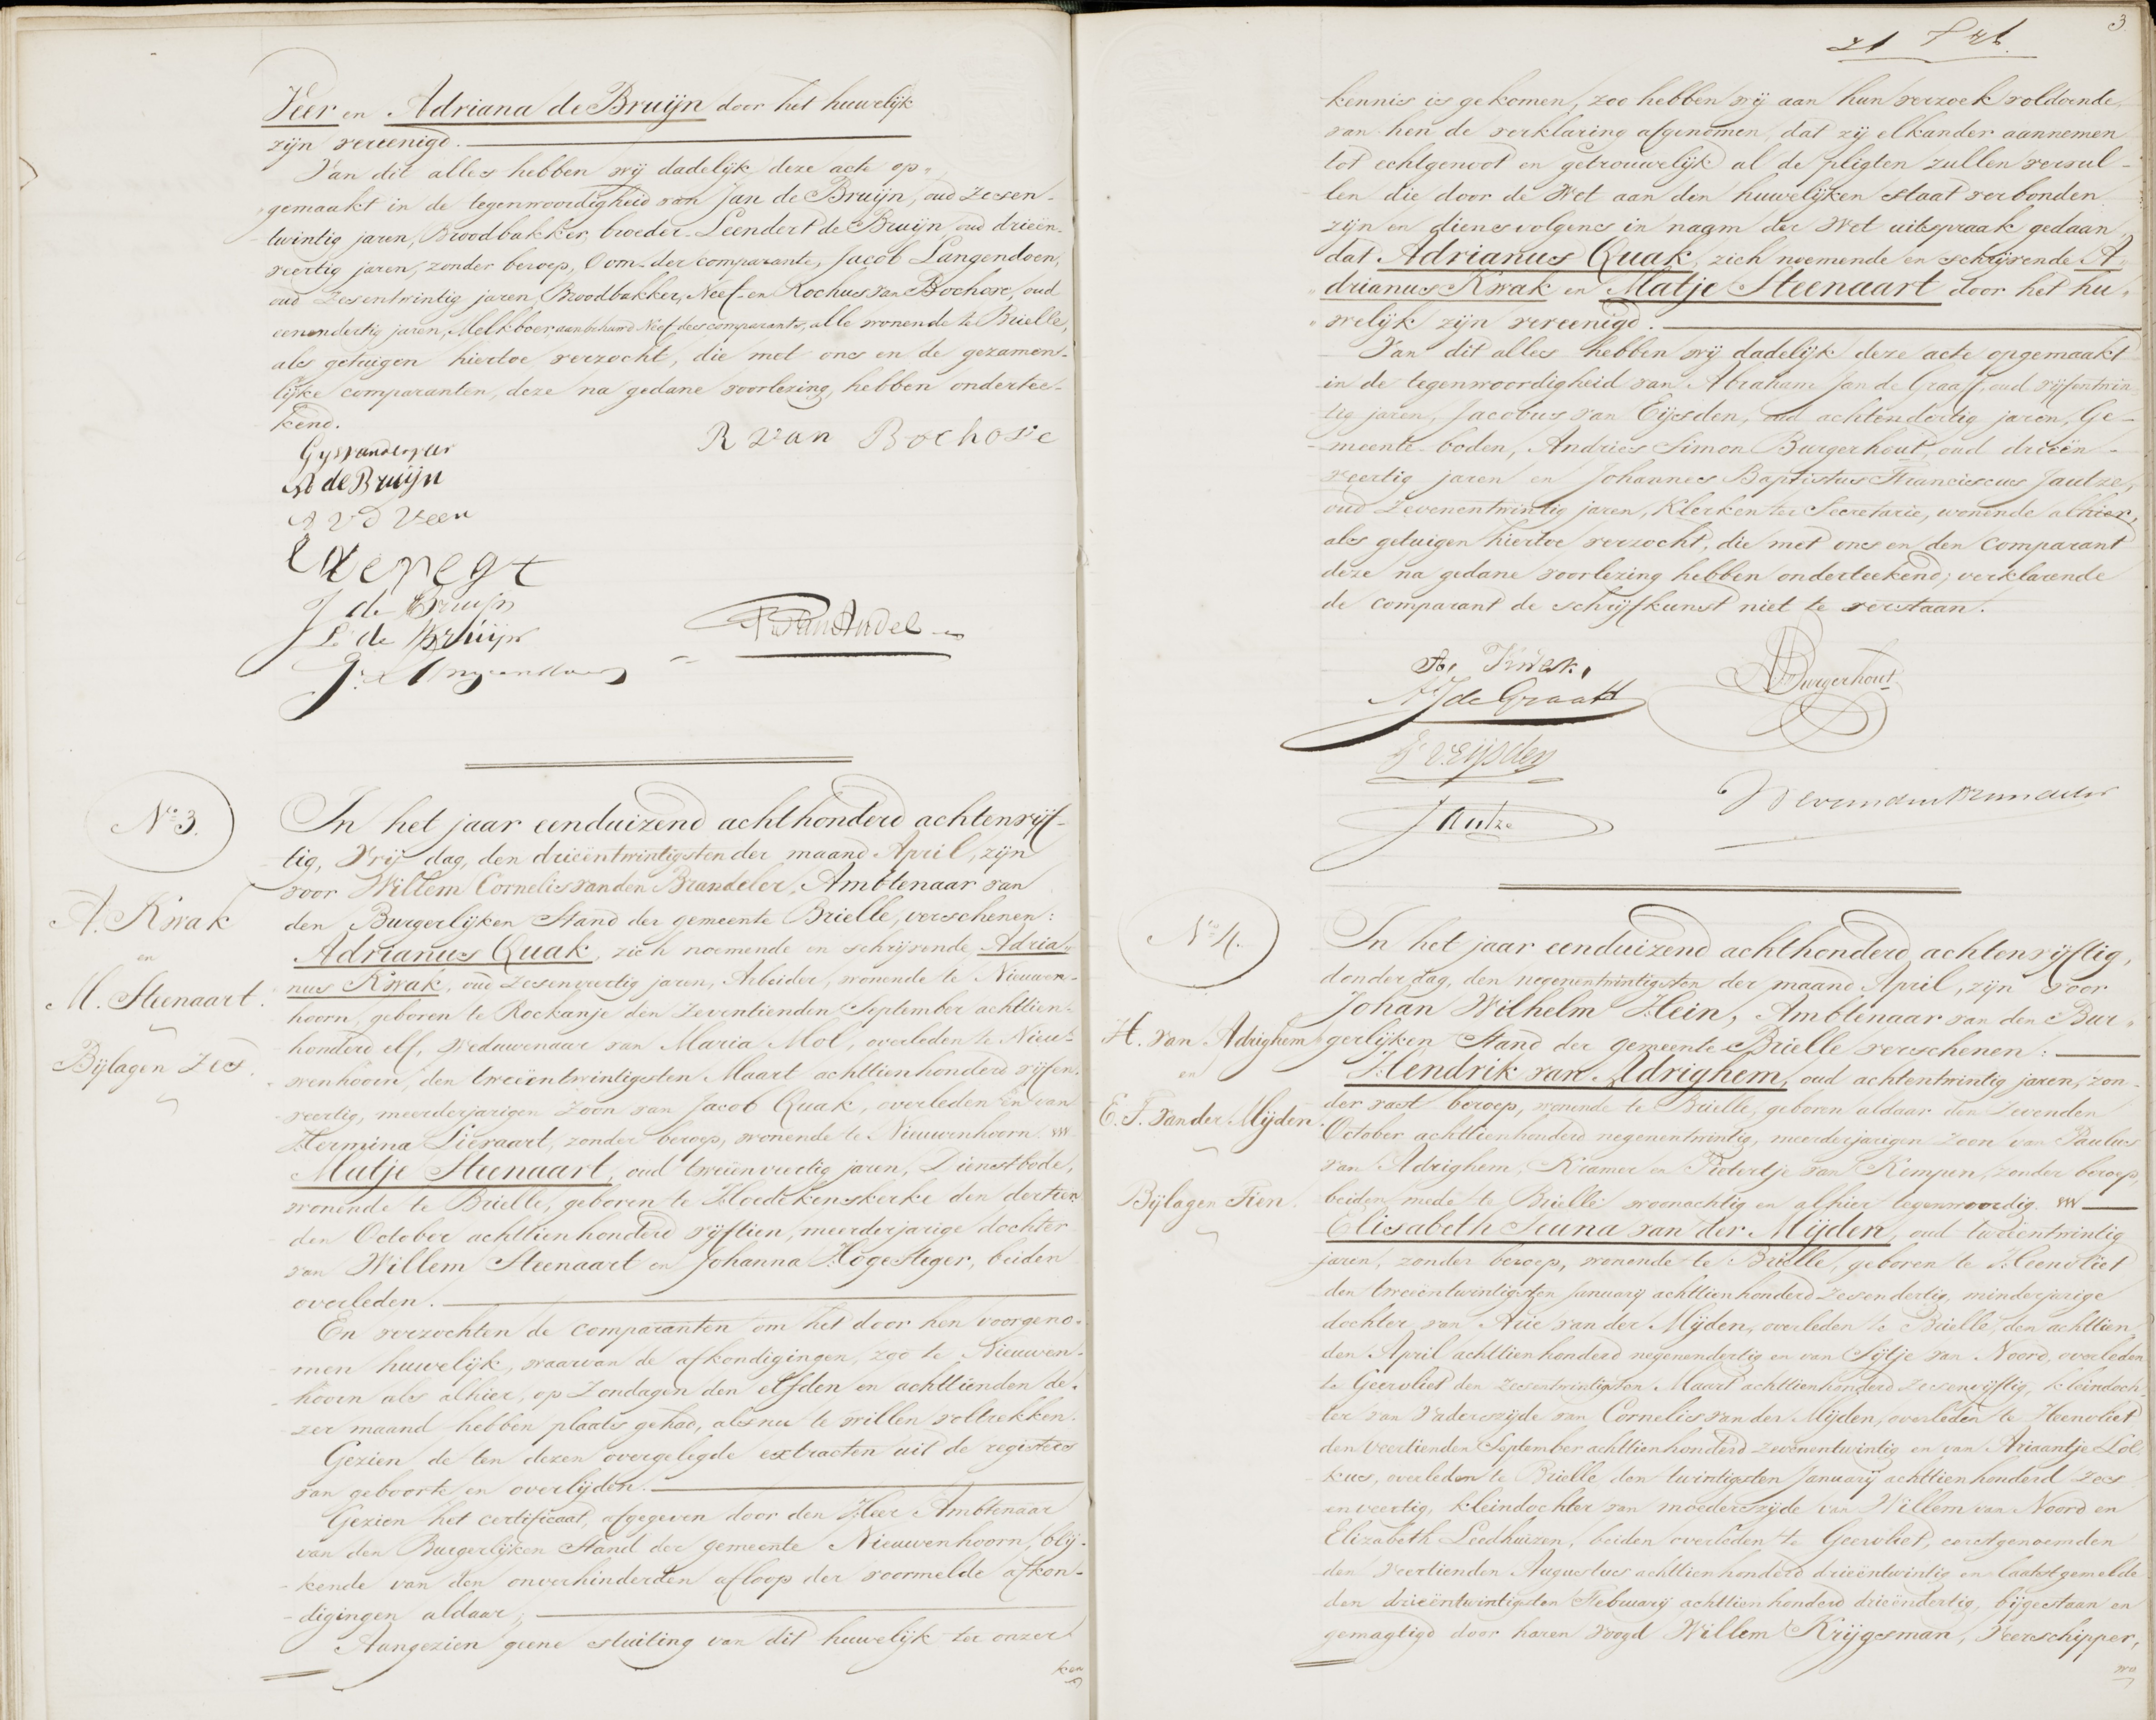 Veer en Adriana de Bruijn door het huwelijk
zijn vereenigd.
Van dit alles hebben wij dadelijk deze acte op-
gemaakt in de tegenwoordigheid van Jan de Bruijn, oud zesen-
twintig jaren, Broodbakker, broeder, Leendert de Bruijn, oud drieën-
veertig jaren, zonder beroep, Oom der comparante, Jacob Langendoen,
oud zesentwintig jaren, Broodbakker, Neef en Rochus van Bochove, oud
eenendertig jaren, Melkboer, aanbehuwd Neef des comparants, alle wonende te Brielle,
als getuigen hiertoe verzocht, die met ons en de gezamen-
lijke comparanten, deze na gedane voorlezing, hebben ondertee-
kend.
R van Bochove
A de Bruijn
A v d Veer
J de Bruijn
L de Bruijn
No 3.
A. Kwak
en
M. Steenaart.
Bijlagen zes.
In het jaar eenduizend achthonderd achtenvijf-
tig, Vrijdag, den drieëntwintigsten der maand April, zijn
voor Willem Cornelis van den Brandeler, Ambtenaar van
den Burgerlijken Stand der gemeente Brielle, verschenen:
Adrianus Quak, zich noemende en schrijvende Adria-
nus Kwak, oud zesenveertig jaren, Arbeider, wonende te Nieuwen-
hoorn, geboren te Rockanje den zeventienden September achttien-
honderd elf, Weduwenaar van Maria Mol, overleden te Nieu-
wenhoorn, den tweeëntwintigsten Maart achttienhonderd vijfen-
veertig, meerderjarigen zoon van Jacob Quak, overleden en van
Hermina Lievaart, zonder beroep, wonende te Nieuwenhoorn.
Matje Steenaart, oud tweeënveertig jaren, Dienstbode,
wonende te Brielle, geboren te Hoedekenskerke den dertien-
den October achttienhonderd vijftien, meerderjarige dochter
van Willem Steenaart en Johanna Hogesteger, beiden
overleden.
En verzochten de comparanten om het door hen voorgeno-
men huwelijk, waarvan de afkondigingen, zoo te Nieuwen-
hoorn als alhier, op Zondagen den elfden en achttienden de-
zer maand hebben plaats gehad, alsnu te willen voltrekken.
Gezien de ten dezen overgelegde extracten uit de registers
van geboorte en overlijden.
Gezien het certificaat, afgegeven door den Heer Ambtenaar
van den Burgerlijken Stand der gemeente Nieuwenhoorn, blij-
kende van den onverhinderden afloop der voormelde afkon-
digingen aldaar,
Aangezien geene stuiting van dit huwelijk ter onzer
ken
3
kennis is gekomen, zoo hebben wij aan hun verzoek voldoende,
van hen de verklaring afgenomen, dat zij elkander aannemen
tot echtgenoot en getrouwelijk al de pligten zullen vervul-
len die door de Wet aan den huwelijken staat verbonden
zijn en diensvolgens in naam der Wet uitspraak gedaan,
dat Adrianus Quak, zich noemende en schrijvende A-
drianus Kwak en Matje Steenaart door het hu-
welijk zijn vereenigd.
Van dit alles hebben wij dadelijk deze acte opgemaakt
in de tegenwoordigheid van Abraham Jan de Graaff, oud vijfentwin-
tig jaren, Jacobus van Eijsden, oud achtendertig jaren, Ge-
meente-boden, Andries Simon Burgerhout, oud drieën-
veertig jaren en Johannes Baptistus Franciscus Jautze,
oud zevenentwintig jaren, Klerken ter Secretarie, wonende alhier,
als getuigen hiertoe verzocht, die met ons en den comparant
deze na gedane voorlezing hebben onderteekend, verklarende
de comparant de schrijfkunst niet te verstaan.
A. Kwak.
A J de Graaff
Burgerhout
J v. Eijsden
Jautze
No 4.
H. van Adrighem
en
E. T. van der Mijden.
Bijlagen Tien.
In het jaar eenduizend achthonderd achtenvijftig,
donderdag, den negenentwintigsten der maand April, zijn voor
Johan Wilhelm Hein, Ambtenaar van den Bur-
gerlijken Stand der gemeente Brielle verschenen:
Hendrik van Adrighem, oud achtentwintig jaren, zon-
der vast beroep, wonende te Brielle, geboren aldaar den zevenden
October achttienhonderd negenentwintig, meerderjarigen zoon van Paulus
van Adrighem, Kramer en Pietertje van Kempen, zonder beroep,
beiden mede te Brielle woonachtig en alhier tegenwoordig.
Elisabeth Teuna van der Mijden, oud tweeëntwintig
jaren, zonder beroep, wonende te Brielle, geboren te Heenvliet
den tweeëntwintigsten January achttienhonderd zesendertig, minderjarige
dochter van Arie van der Mijden, overleden te Brielle, den achttien-
den April achttienhonderd negenendertig en van Sijtje van Noord, overleden
te Geervliet den zesentwintigsten Maart achttienhonderd zesenvijftig, kleindoch-
ter van Vaderszijde van Cornelis van der Mijden, overleden te Heenvliet
den veertienden September achttienhonderd zevenentwintig en van Ariaantje
overleden te Brielle den twintigsten January achttienhonderd zes
enveertig, kleindochter van moederszijde van Willem van Noord en
Elizabeth Leedhuizen, beiden overleden te Geervliet, eerstgenoemden
den veertienden Augustus achttienhonderd drieëntwintig en laatstgemelde
den drieëntwintigsten February achttienhonderd drieëndertig, bijgestaan en
gemagtigd door haren Voogd Willem Krijgsman, Veerschipper,
wo